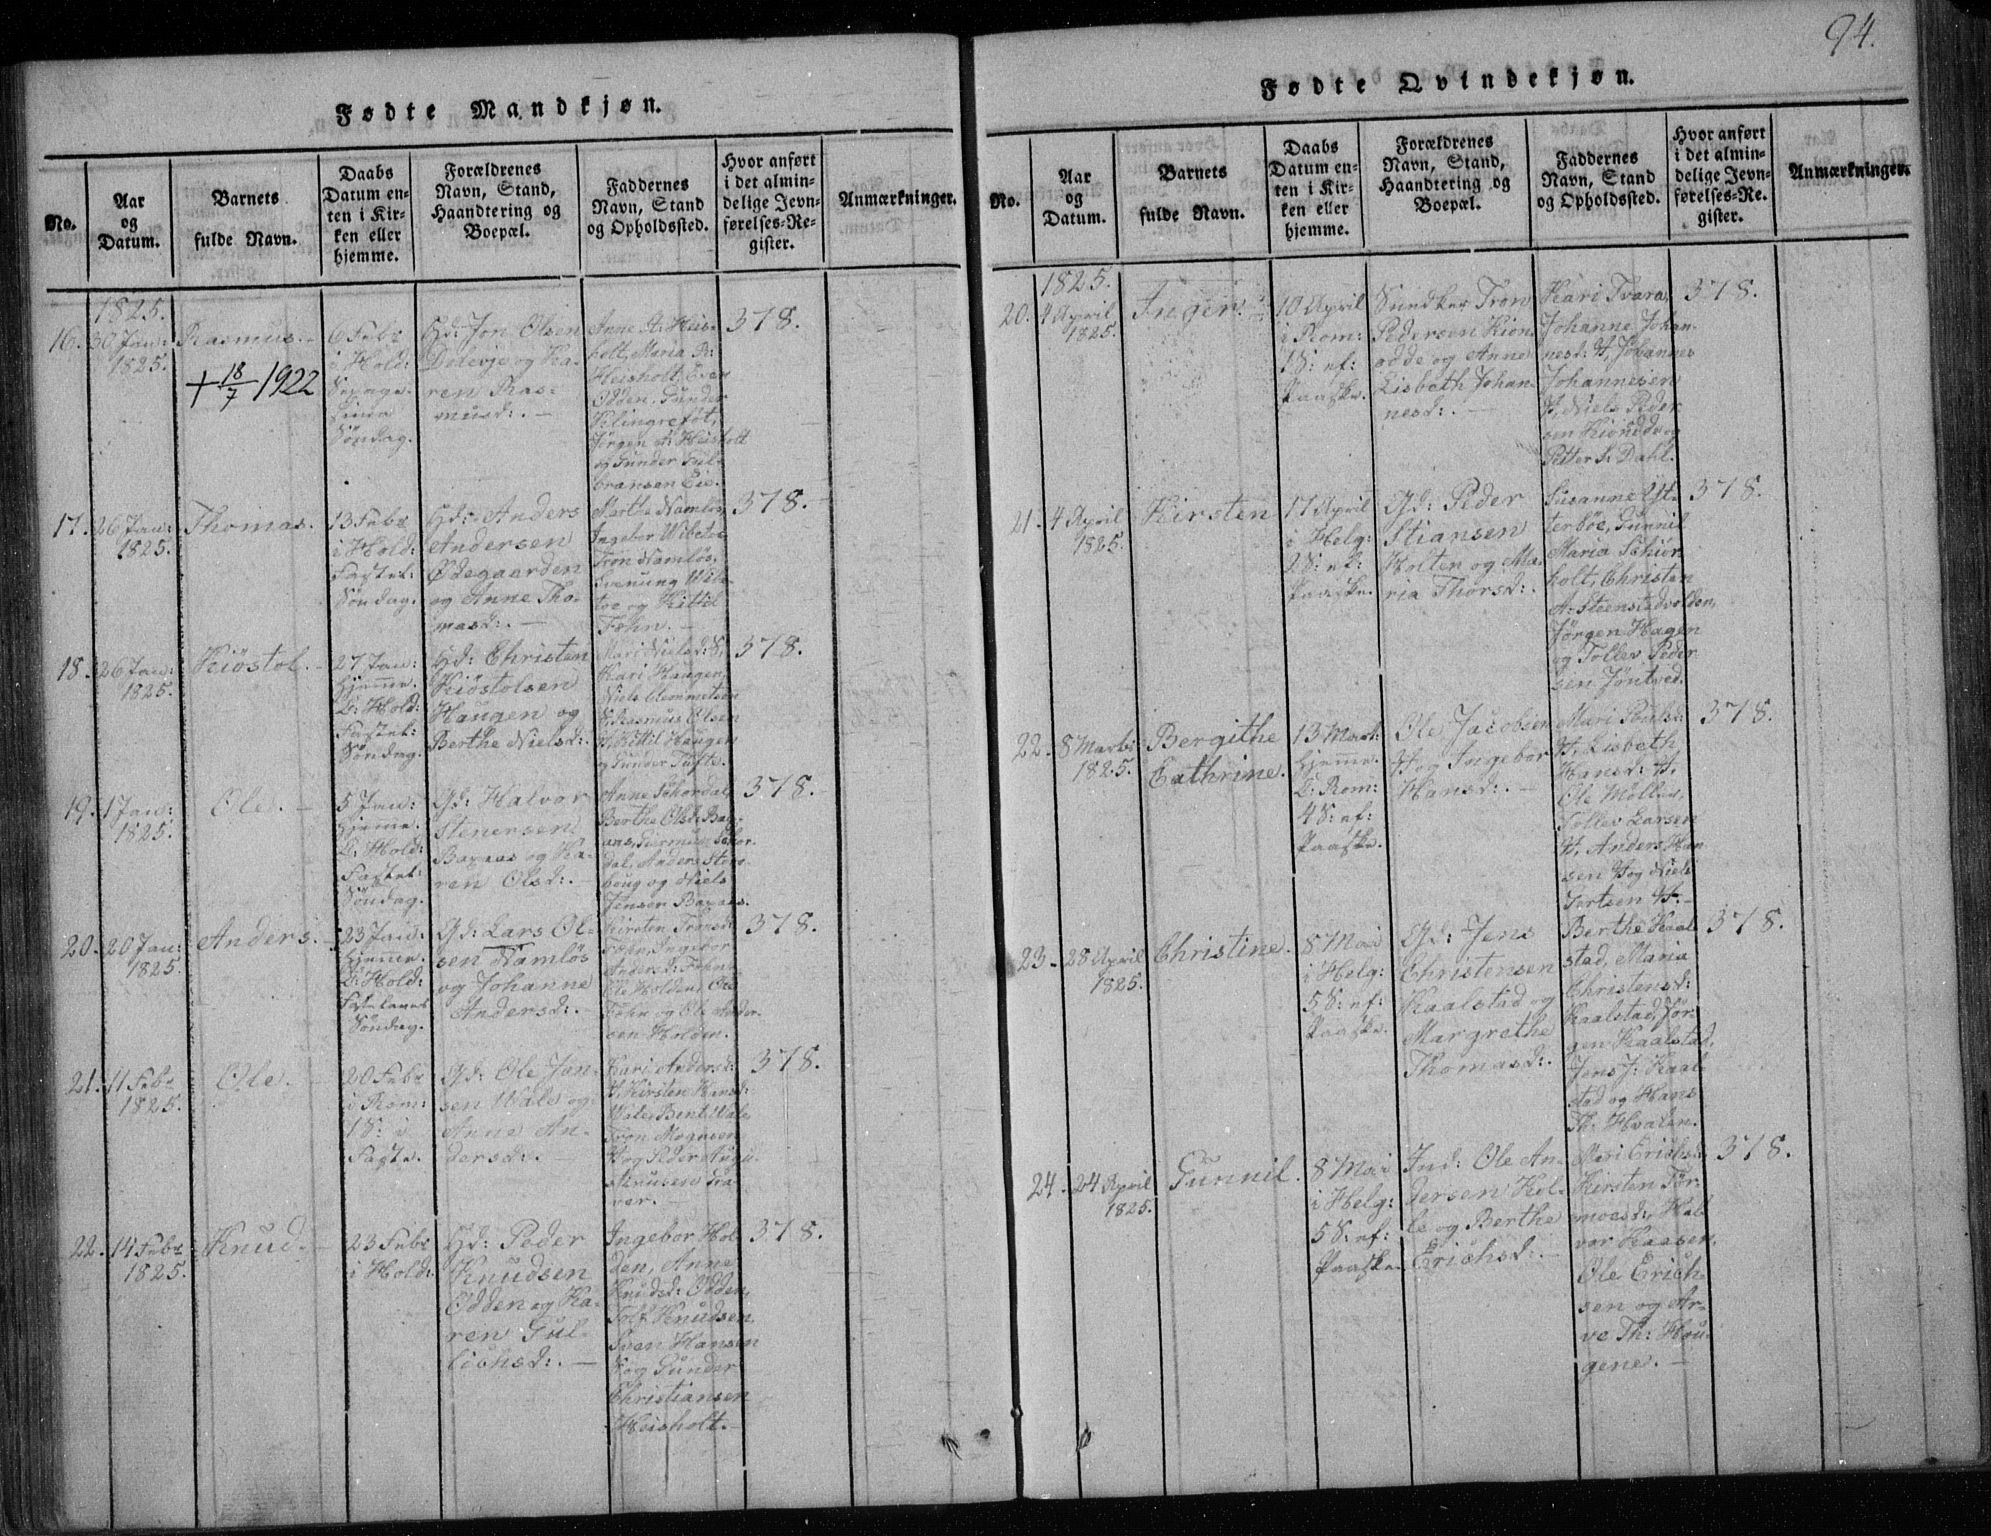 94.
Fødte Mandkjøn.
No.
Aar
og
Datum.
Barnets
fulde Navn.
Daabs
Datum en=
ten i Kir=
ken eller
hjemme.
Forældrenes
Navn, Stand,
Haandtering og
Boepæl.
Faddernes
Navn, Stand
og Opholdssted.
Hvor anført
i det almin=
delige Jevn=
førelses=Re=
gister.
Anmærkninger.
1825.
16. 30 Jan:
1825.
Rasmus.
+ 18/7 1922
6 Febr
i Hold:
Sexage=
sima
Søndag.
Gd: Jon Olsen
Dolevje og Ka=
ren Ras=
musd:. —
Anne A: Heis=
holt, Maria R:
Heisholt, Even
Odden, Gunder
Jørgen A: Heisholt
og Gunder Gul=
bransen Eie.
378.
17. 26 Jan:
1825.
Thomas.
13 Febr
i Hold:
Fastel:
Søndag.
Gd: Anders
Andersen
Ødegaarden
og Anne Tho=
masd:. —
Marthe Namløs,
Ingebor Wibetoe
Tron Namløs,
Svenung Wibe=
toe og Kittil
Fehn. —
378.
18. 26 Jan:
1825.
Kiøstol.
27 Jan:
hjemme.
D: Hold:
Fastel:
Søndag.
Hd: Christen
Kiöstolsen
Haugen og
Berthe Nielsd:.
Mari Nielsd: S,
Kari Haugen,
Niels Clemmetsen
S, Rasmus Olsen
H, Kittil Haugen
og Gunder Tufte.
378.
19. 1 Jan:
1825.
Ole.
5 Jan:
hjemme.
D: Hold:
Fastel:
Søndag.
Gd: Halvor
Stenersen
Baxaas og Ka=
ren Olsd:.
Anne Schordal,
Berthe Olsd: Bax=
aas, Gurmun Schor=
dal, Anders Sten=
houg og Niels
Jensen Baxaas.
378.
20. 20 Jan:
1825.
Anders.
23 Jan:
hjemme.
D: Hold:
Fastelavns
Søndag.
Gd: Lars Ol=
sen Namløs
og Johanne
Andersd:.
Kirsten Tronsd:
Fehn, Ingebor
Andersd: Fehn,
Ole Holden, Ole
Fehn og Ole Ander=
sen Holden.
378.
21. 11 Febr
1825.
Ole.
20 Febr
i Rom:
1 S: i
Faste.
Gd: Ole Jan=
sen Wale og
Anne An=
dersd:. —
Kari Andersd:
H, Kirsten Hansd:
Wale, Bent Wale
Tron Mognsen
H og Peder Augu=
stinusen Tra=
ver. —
378.
22. 14 Febr
1825.
Knud.
23 Febr
i Hold:
Hd: Peder
Knudsen
Odden og Ka=
ren Gul=
lichsd:. —
Ingebor Hol=
den, Anne
Knudsd: Odden,
Tolf Knudsen
Sven Hansen
S og Gunder
Christiansen
Heisholt.
378.
Fødte Qvindekjøn.
No.
Aar
og
Datum.
Barnets
fulde Navn.
Daabs
Datum en=
ten i Kir=
ken eller
hjemme.
Forældrenes
Navn, Stand,
Haandtering og
Boepæl.
Faddernes
Navn, Stand
og Opholdssted.
Hvor anført
i det almin=
delige Jevn=
førelses=Re=
gister.
Anmærkninger.
1825.
20. 4 April
1825.
Inger.
10 April
i Rom:
1 S: ef:
Paaske.
Sundker Tron
Pedersen Kion=
odde og Anne
Lisbeth Johan=
nesd:. —
Kari Tvara,
Johanne Johan=
nesd: H, Johannes
Johannesen
H, Niels Peder=
sen Kionodde og
Petter S: Dahl.
378.
21. 4 April
1825.
Kirsten
17 April
i Helg:
2 S: ef:
Paaske.
Gd: Peder
Stiansen
Holten og Ma=
ria Thorsd:.
Susanne Yt=
terbøe, Gunnil
Maria Schier=
holt, Christen
A: Steenstadvolden,
Jørgen Hagen
og Tollev Peder=
sen Jøntved.
378.
22. 8 Marts
1825.
Bergithe
Cathrine.
13 Mart:
hjemme.
D: Rom:
4 S: ef:
Paaske.
Ole Jacobsen
H og Ingebor
Hansd:. —
Mari Poulsd:
H, Lisbeth
Hansd: H,
Ole Møller,
Tollev Larsen
H, Anders Han=
sen H og Niels
Tortsen H. —
378.
23. 28 April
1825.
Christine.
8 Mai
i Helg:
5 S: ef:
Paaske.
Gd: Jens
Christensen
Kaalstad og
Margrethe
Thomasd:.
Berthe Kaal=
stad, Maria
Christensd:
Kaalstad, Jør=
gen Kaalstad,
Jens J: Kaal=
stad og Hans
Th: Hvalen.
378.
24. 24 April
1825.
Gunnil.
8 Mai
i Helg:
5 S: ef:
Paaske.
Ind: Ole An=
dersen Hol=
le og Berthe
Erichsd:. —
Mari Erichsd:
Kirsten Tor=
moesd:, Hal=
vor Kaasen,
Ole Erich=
sen og Ar=
ve Th: Hou=
gene. —
378.